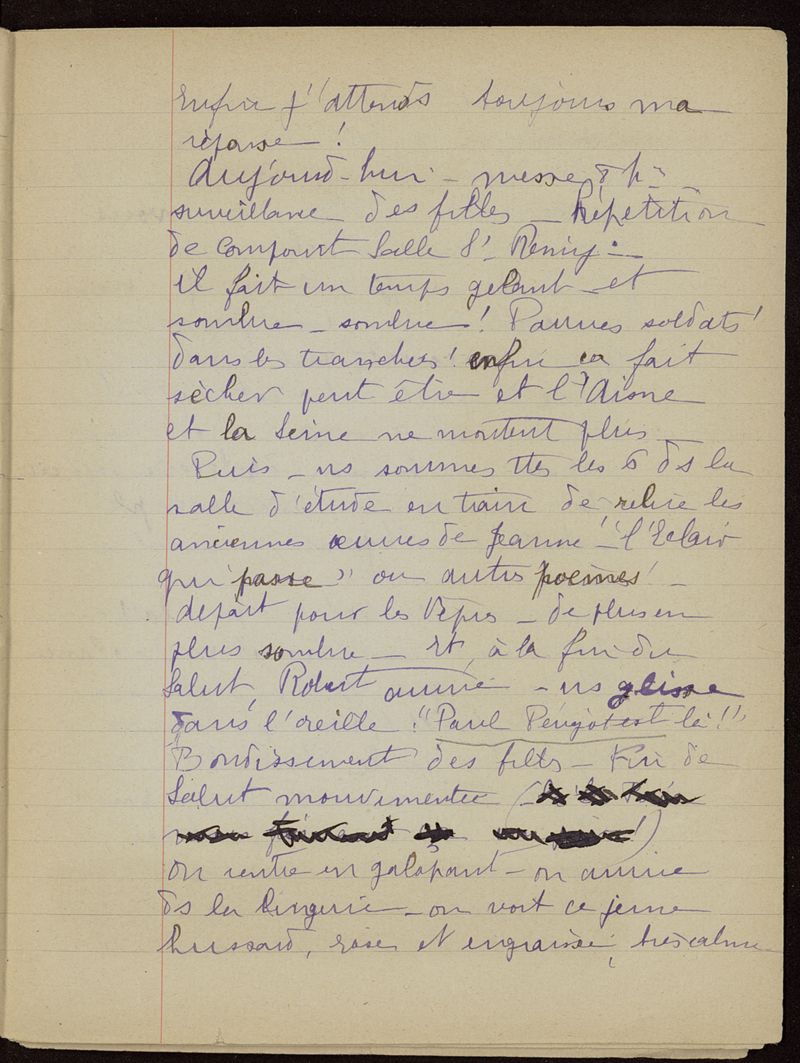 Enfin j'attends toujours ma
réponse !
Aujourd-hui - messe 8 h -
surveillance des filles - Répétition
de Compount Salle St Remy -
il fait un temps gelant - et
sombre - sombre ! Pauvres soldats !
dans les tranchées ! enfin ça fait
sècher peut être et l'Aisne
et la Seine ne montent plus
Puis - ns sommes ttes les 6 ds la
salle d'étude en train de relire les
anciennes œuvres de Jeanne - "l'Eclair
qui passe" ou autres poèmes ! -
départ pour les Vêpres - de plus en
plus sombre - Et, à la fin du
Salut, Robert arrive - ns glisse
dans l'oreille : "Paul Peugeot est là !"
Bondissement des filles - Fin de
Salut mouvementée (
)
on rentre en galopant - on arrive
ds la lingerie - on voit ce jeune
hussard, rose et engraissé, très calme -